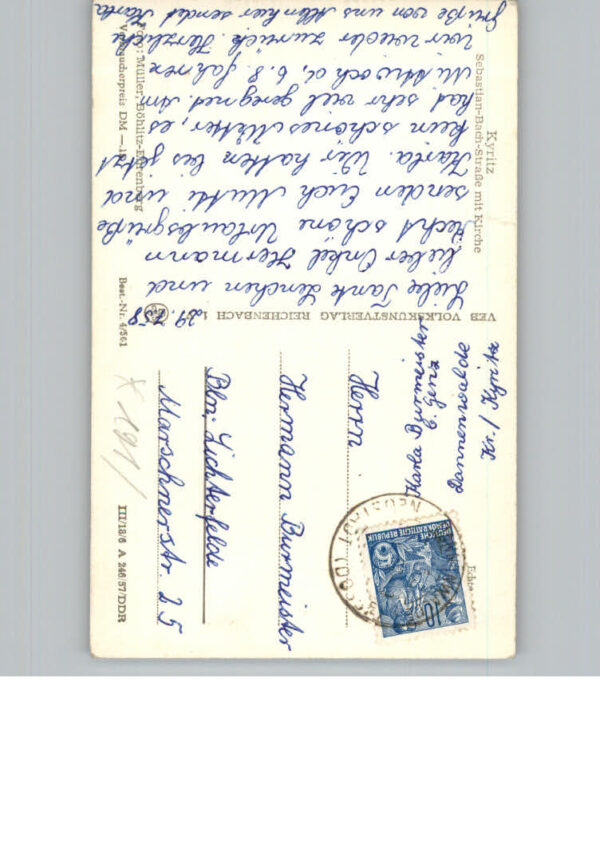 Kyritz
Sebastian-Bach-Straße mit Kirche
29.7.58
Liebe Tante Lenchen und
lieber Onkel Hermann
Recht schöne Urlaubsgrüße
senden Euch Mutti und
Karla. Wir hatten bis jetzt
kein schönes Wetter, es
hat sehr viel geregnet. Am
Mittwoch d. 6.8. fahren
wir wieder zurück. Herzliche
Grüße von uns Allen hier sendet Karla
Foto: Müller, Böhlitz-Ehrenberg
Verbraucherpreis DM
Best.-Nr. 4/561
VEB VOLKSKUNSTVERLAG REICHENBACH i
Karla Burmeister
b. Genz
Dannenwalde
Kr./Kyritz
Herrn
Hermann Burmeister
Bln; Lichterfelde
Marschnerstr. 25
X 191/
III/18/6 A 246/57/DDR
DEUTSCHE
DEMOKRATISCHE REPUBLIK
10
NEUSTADT (DOSSE)